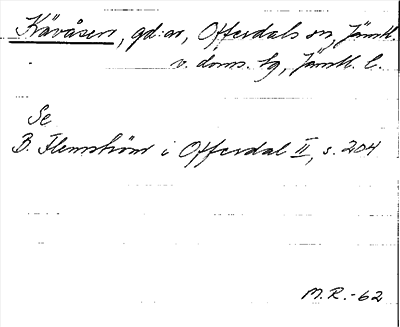 Kävåsen, gd:ar, Offerdals sn, Jämtl.
v. doms. tg, Jämtl. l.
Se
B. Flemström i Offerdal II, s. 204
M.R.-62